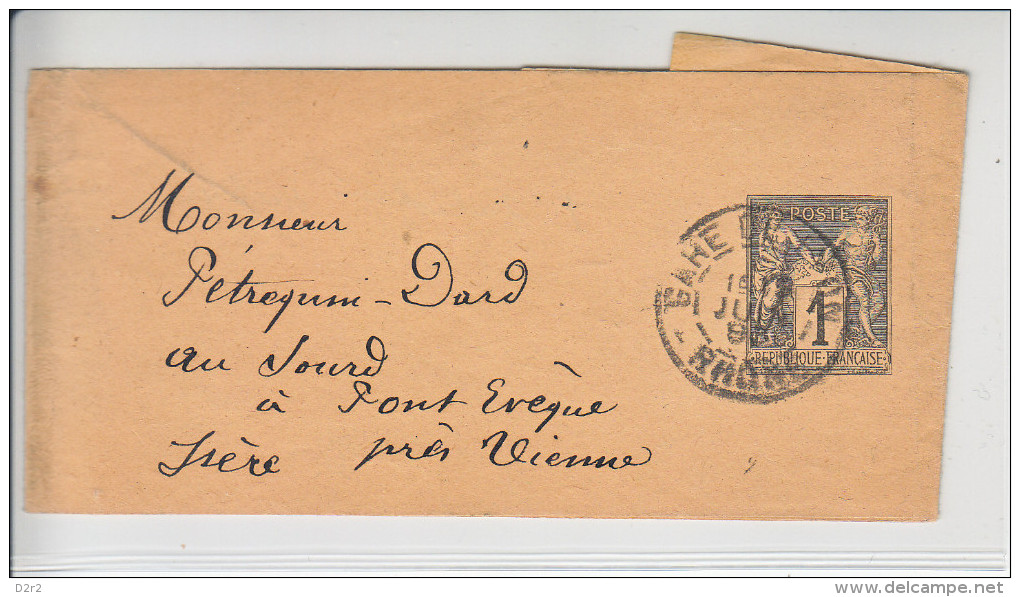 Monsieur
Pétrequin-Dard
au Sourd
à Pont Evêque
Isère près Vienne
POSTE
1
REPUBLIQUE FRANÇAISE
GARE DE
RHONE
D2r2
delcampe.net